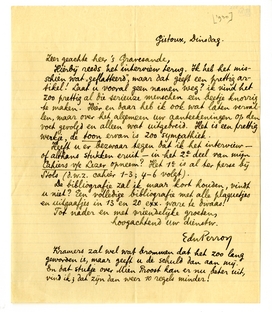 [1930]
Gistoux, Dinsdag.
Zeer geachte heer 's Gravesande,
Hierbij reeds het interview terug. Ik heb het mis-
schien wat "geflatteerd", maar dat geeft een prettig ar-
tikel! Laat u vooral geen namen weg? ik vind het
zoo prettig al die serieuze menschen een beetje knorrig
te maken. Hier en daar heb ik ook wat laten verval-
len, maar over het algemeen uw aanteekeningen op den
voet gevolgd en alles wat uitgebreid. Het is een prettig
werkje, te doen ervan is zoo sympathiek.
Heeft u er bezwaar tegen dat ik het interview –
of althans stukken eruit – in het 2e deel van mijn
Cahiers v/e Lezer opneem? Het 1e is al ter perse bij
Stols (d.w.z. cahier 1–3; 4–6 volgt).
De bibliografie zal ik maar kort houden, vindt
u niet? Een volledige bibliografie met alle plaquetjes
en uitgaafjes in 15 en 20 exx. ware te dwaas!
Tot nader en met vriendelijke groeten,
hoogachtend uw dienstw.
EduPerron
Kramers zal wel wat brommen dat het zoo lang
geworden is, maar geeft u de schuld dan aan mij.
En dat stukje over Mien Proost kan er nu beter uit,
vind ik; dat zijn dan weer 10 regels minder!